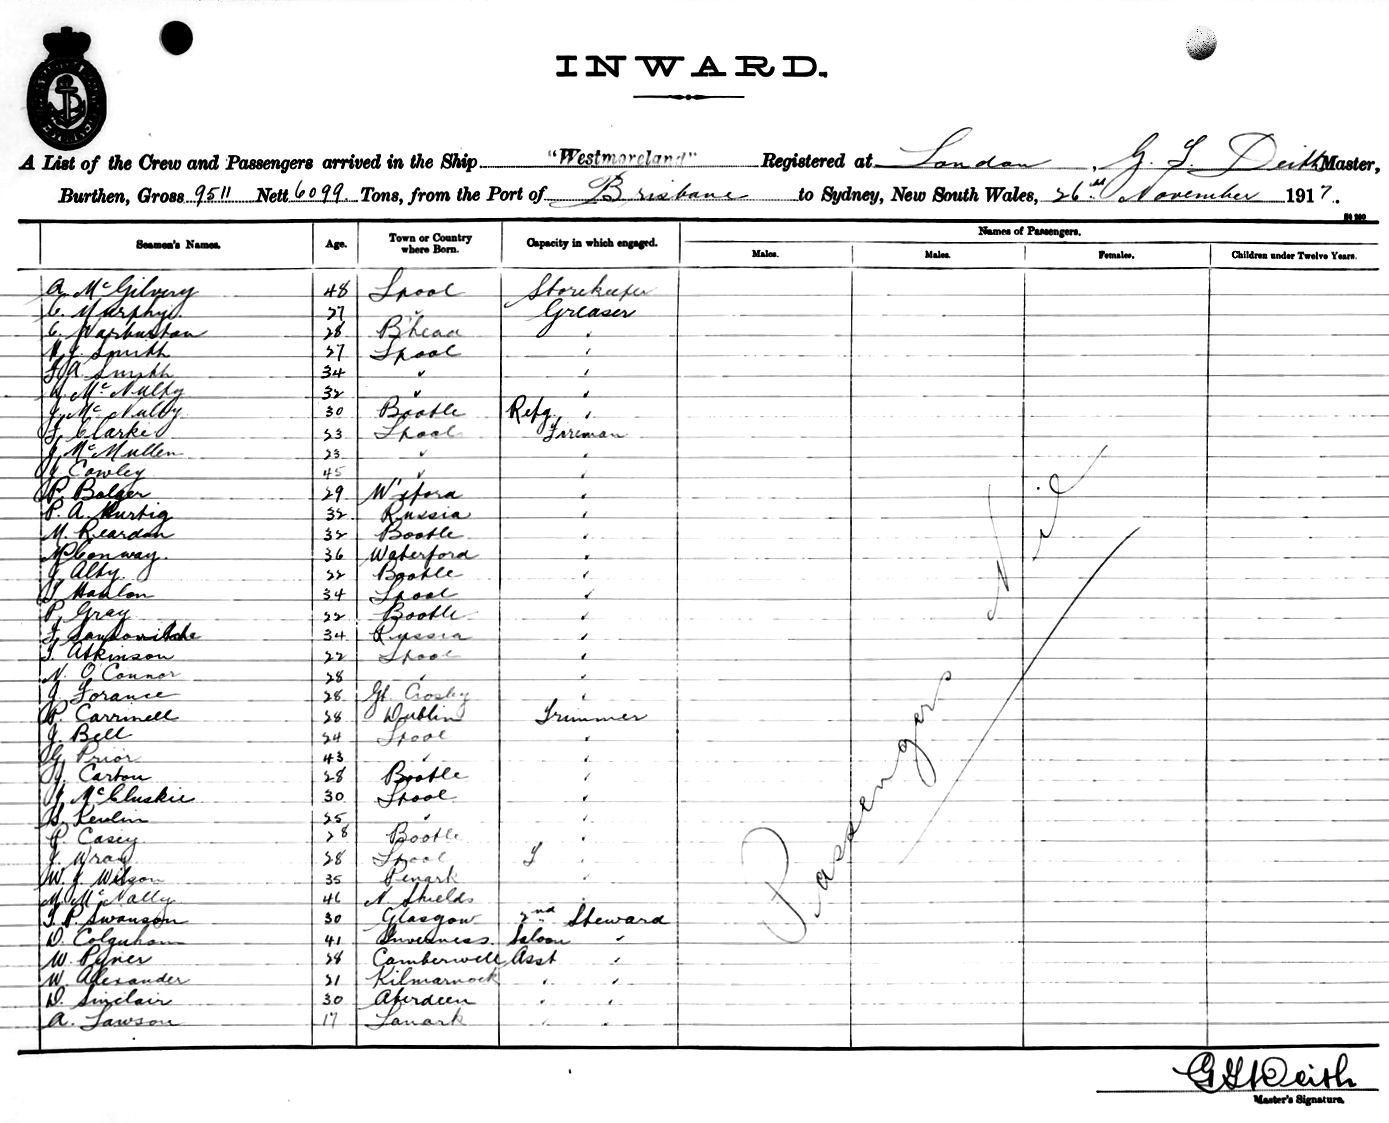 INWARD.
A List of the Crew and Passengers arrived in the Ship "Westmoreland" Registered at London, G. F. Deith Master,
Burthen, Gross 9511 Nett 6099 Tons, from the Port of Brisbane to Sydney, New South Wales, 26th November 1917.
Seamen's Names. Age. Town or Country where Born. Capacity in which engaged. Names of Passengers.
Males. Males. Females. Children under Twelve Years.
A. McGilvery 48 Lpool Storekeeper
C. Murphy 27 " Greaser
C. Warburton 28 B'head "
Smith 27 Lpool "
A Smith 34 " "
McNulty 32 " "
J. McNulty 30 Bootle Refg. "
F. Clarke 23 Lpool Fireman
J. McMullen 23 " "
J. Cowley 45 " "
P. Bolger 29 W'xford "
P. A. Kurtig 32 Russia "
M. Reardon 32 Bootle "
Conway. 36 Waterford "
J. Alty 22 Bootle "
T. Hanlon 34 Lpool "
P. Gray 22 Bootle "
F. 34 Russia "
T. Atkinson 22 Lpool "
N. O'Connor 28 " "
J. Torance 28 Gt. Crosby "
P. Carrinell 28 Dublin Trimmer
J. Bell 24 Lpool "
G. Prior 43 " "
J. Carton 28 Bootle "
J. McCluskie 30 Lpool "
Kevlin 25 " "
P. Casey 28 Bootle "
J. Wray 28 Lpool "
W. J. Wilson 35 Penark "
M. McNally 46 N. Shields "
J. P. Swanson 30 Glasgow 2nd Steward
D. Colquhoun 41 Inverness. Saloon "
W. Piner 28 Camberwell Asst "
W. Alexander 21 Kilmarnock " "
D. Sinclair 30 Aberdeen " "
A. Lawson 17 Lanark " "
Passengers Nil
G F Deith
Master's Signature.